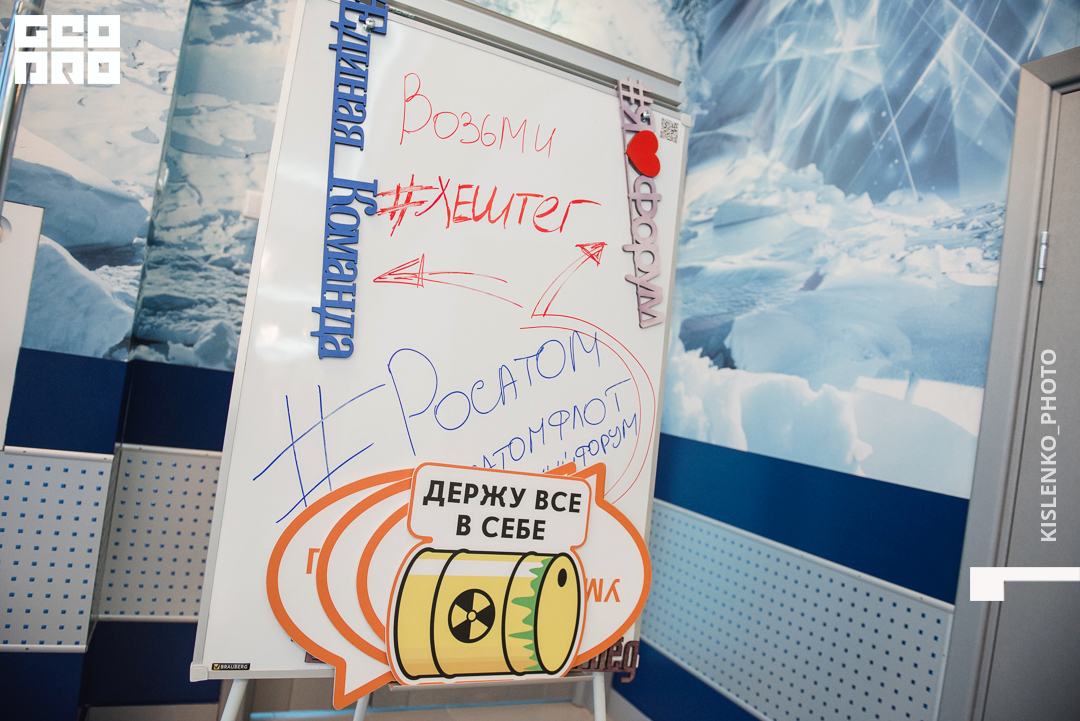 GEO
PRO
#Единая_Команда
Возьми
#ХЕШТЕГ
#Я
форум
#РОСАТОМ
АТОМФЛОТ
ФОРУМ
ДЕРЖУ ВСЕ
В СЕБЕ
УМ
BRAUBERG
KISLENKO_PHOTO